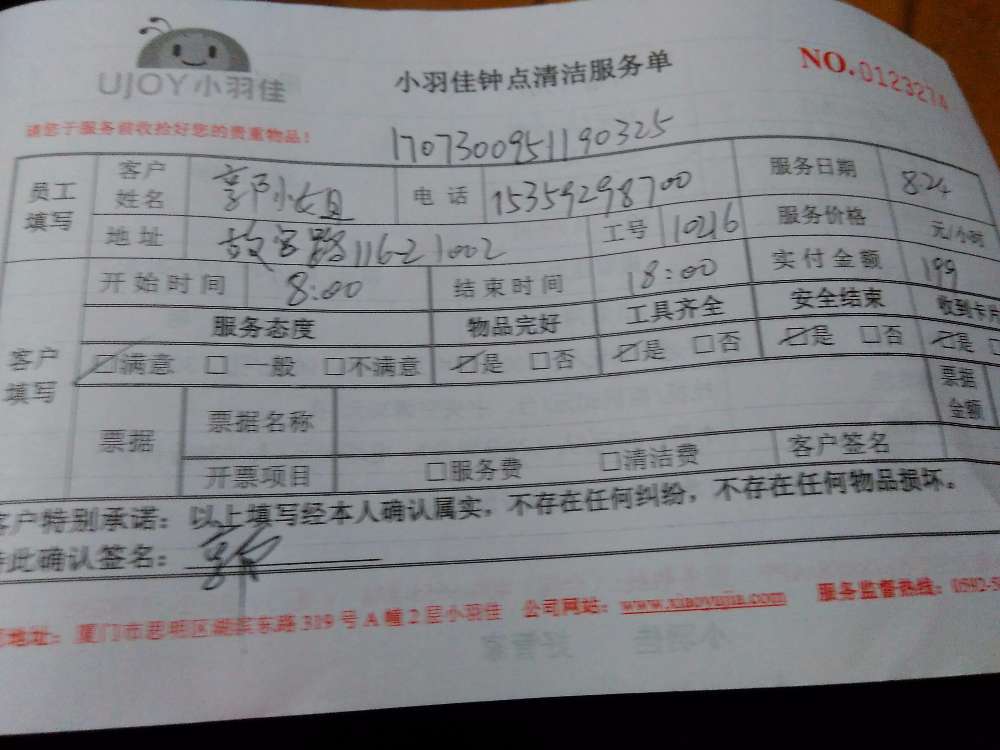 UJOY小羽佳
小羽佳钟点清洁服务单
NO.0123274
请您于服务前收拾好您的贵重物品!
1707300951190325
员工填写 客户姓名 郭小姐 电话 15359298700 服务日期 8.24
地址 故宫路116-21002 工号 10216 服务价格 元/小时
客户填写 开始时间 8:00 结束时间 18:00 实付金额 199
服务态度 物品完好 工具齐全 安全结束 收到卡片
☑满意 □一般 □不满意 ☑是 □否 ☑是 □否 ☑是 □否 ☑是 □
票据 票据名称 票据金额
开票项目 □服务费 □清洁费 客户签名
客户特别承诺:以上填写经本人确认属实,不存在任何纠纷,不存在任何物品损坏。
特此确认签名:
地址:厦门市思明区湖滨东路319号A幢2层小羽佳 公司网站:www.xiaoyujia.com 服务监督热线:0592-5